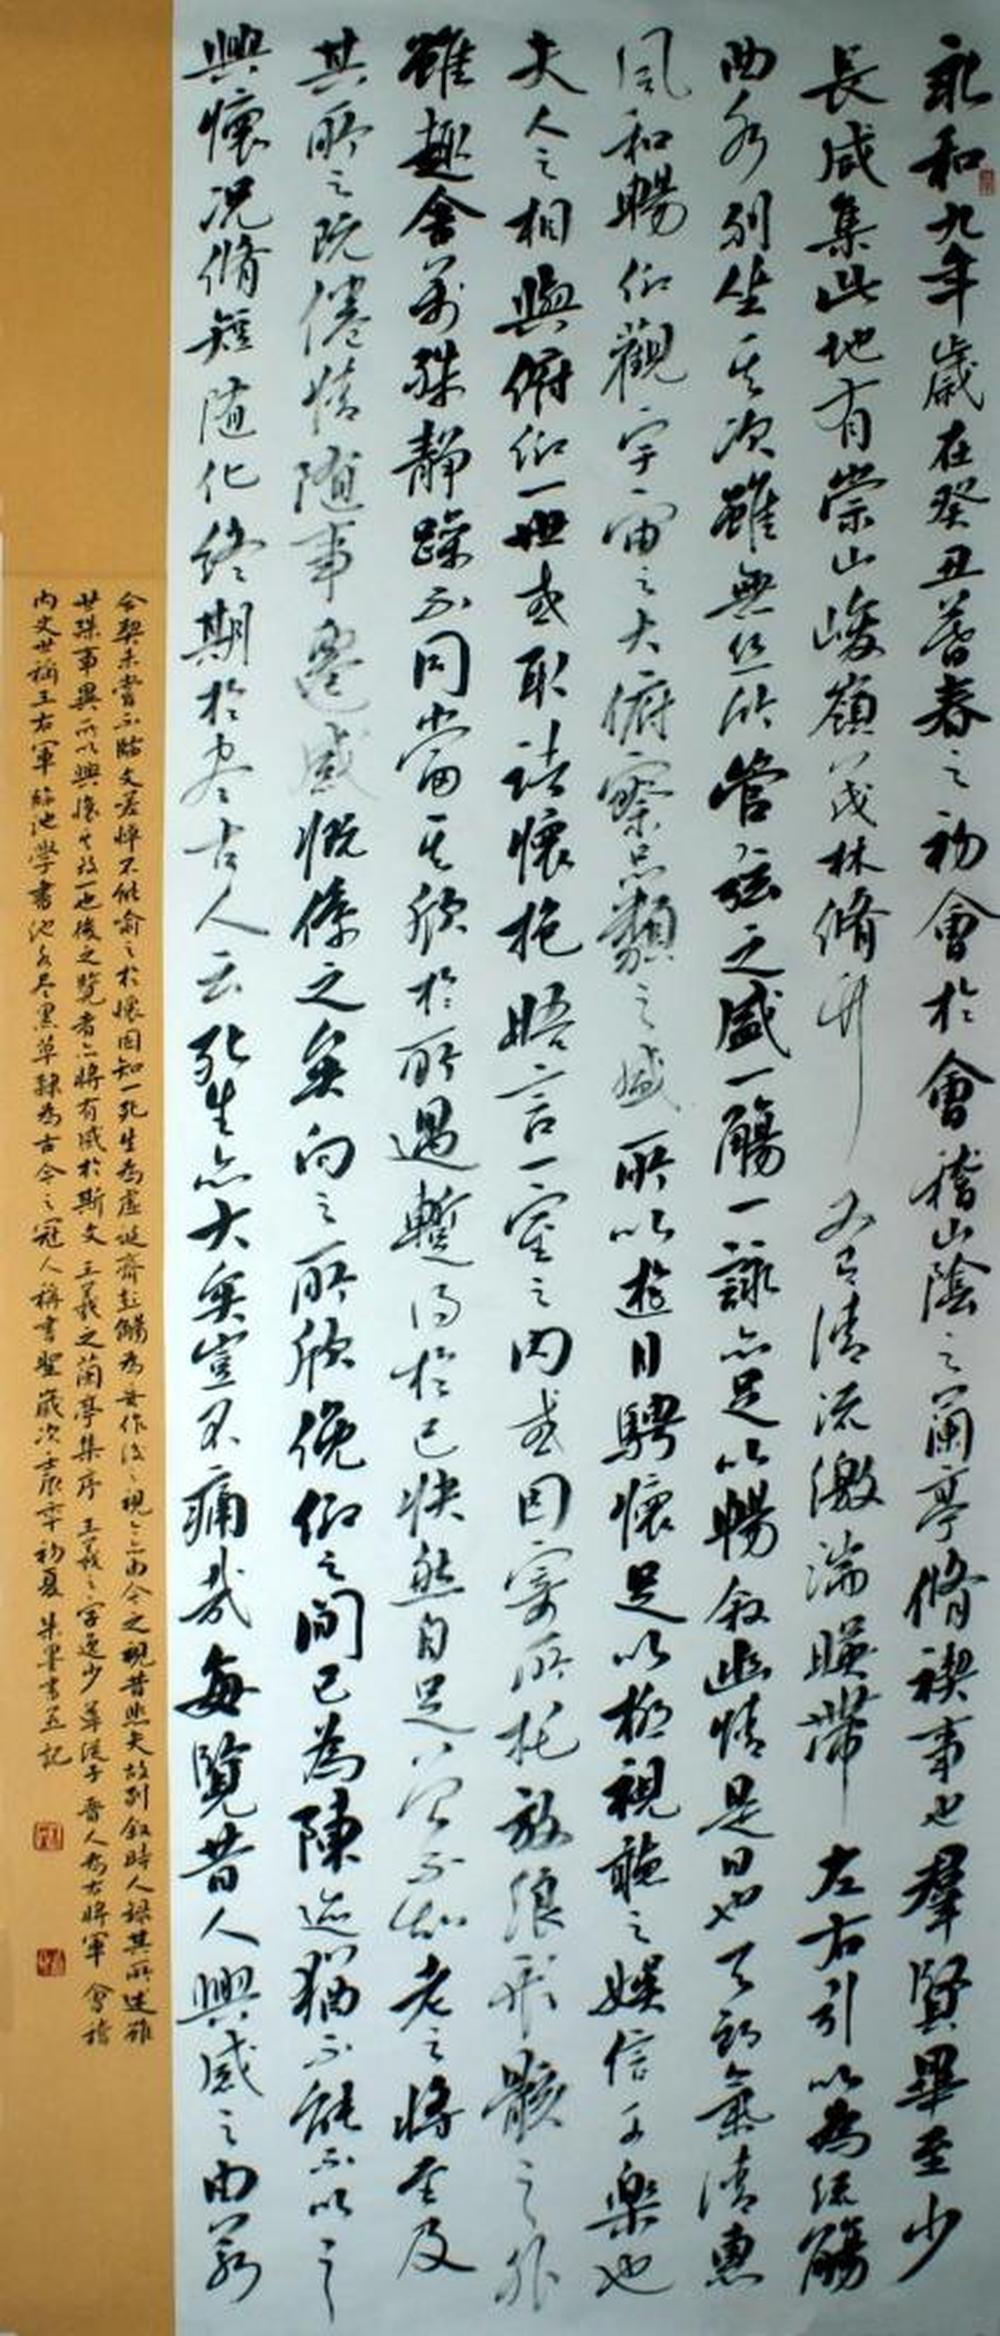 永和九年歲在癸丑暮春之初會於會稽山陰之蘭亭脩禊事也羣賢畢至少
長咸集此地有崇山峻嶺茂林脩竹又有清流激湍暎帶左右引以為流觴
曲水列坐其次雖無絲竹管弦之盛一觴一詠亦足以暢敘幽情是日也天朗氣清惠
風和暢仰觀宇宙之大俯察品類之盛所以遊目騁懷足以極視聽之娛信可樂也
夫人之相與俯仰一世或取諸懷抱晤言一室之內或因寄所托放浪形骸之外
雖趣舍萬殊靜躁不同當其欣於所遇暫得於己快然自足不知老之將至及
其所之既倦情隨事遷感慨係之矣向之所欣俛仰之間已為陳迹猶不能不以之
興懷況脩短隨化終期於盡古人云死生亦大矣豈不痛哉每覽昔人興感之由若
合契未嘗不臨文嗟悼不能喻之於懷固知一死生為虛誕齊彭殤為妄作後之視今亦由今之視昔悲夫故列敘時人錄其所述雖
世殊事異所以興懷其致一也後之覽者亦將有感於斯文 王羲之蘭亭集序 王羲之字逸少 晉人為右將軍 會稽
內史世稱王右軍 臨池學書池水盡黑草隸為古今之冠人稱書聖歲次壬辰年初夏 書並記